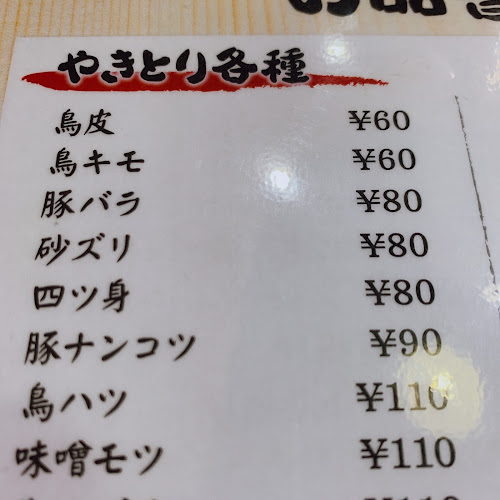 やきとり各種
鳥皮 ¥60
鳥キモ ¥60
豚バラ ¥80
砂ズリ ¥80
四ツ身 ¥80
豚ナンコツ ¥90
鳥ハツ ¥110
味噌モツ ¥110